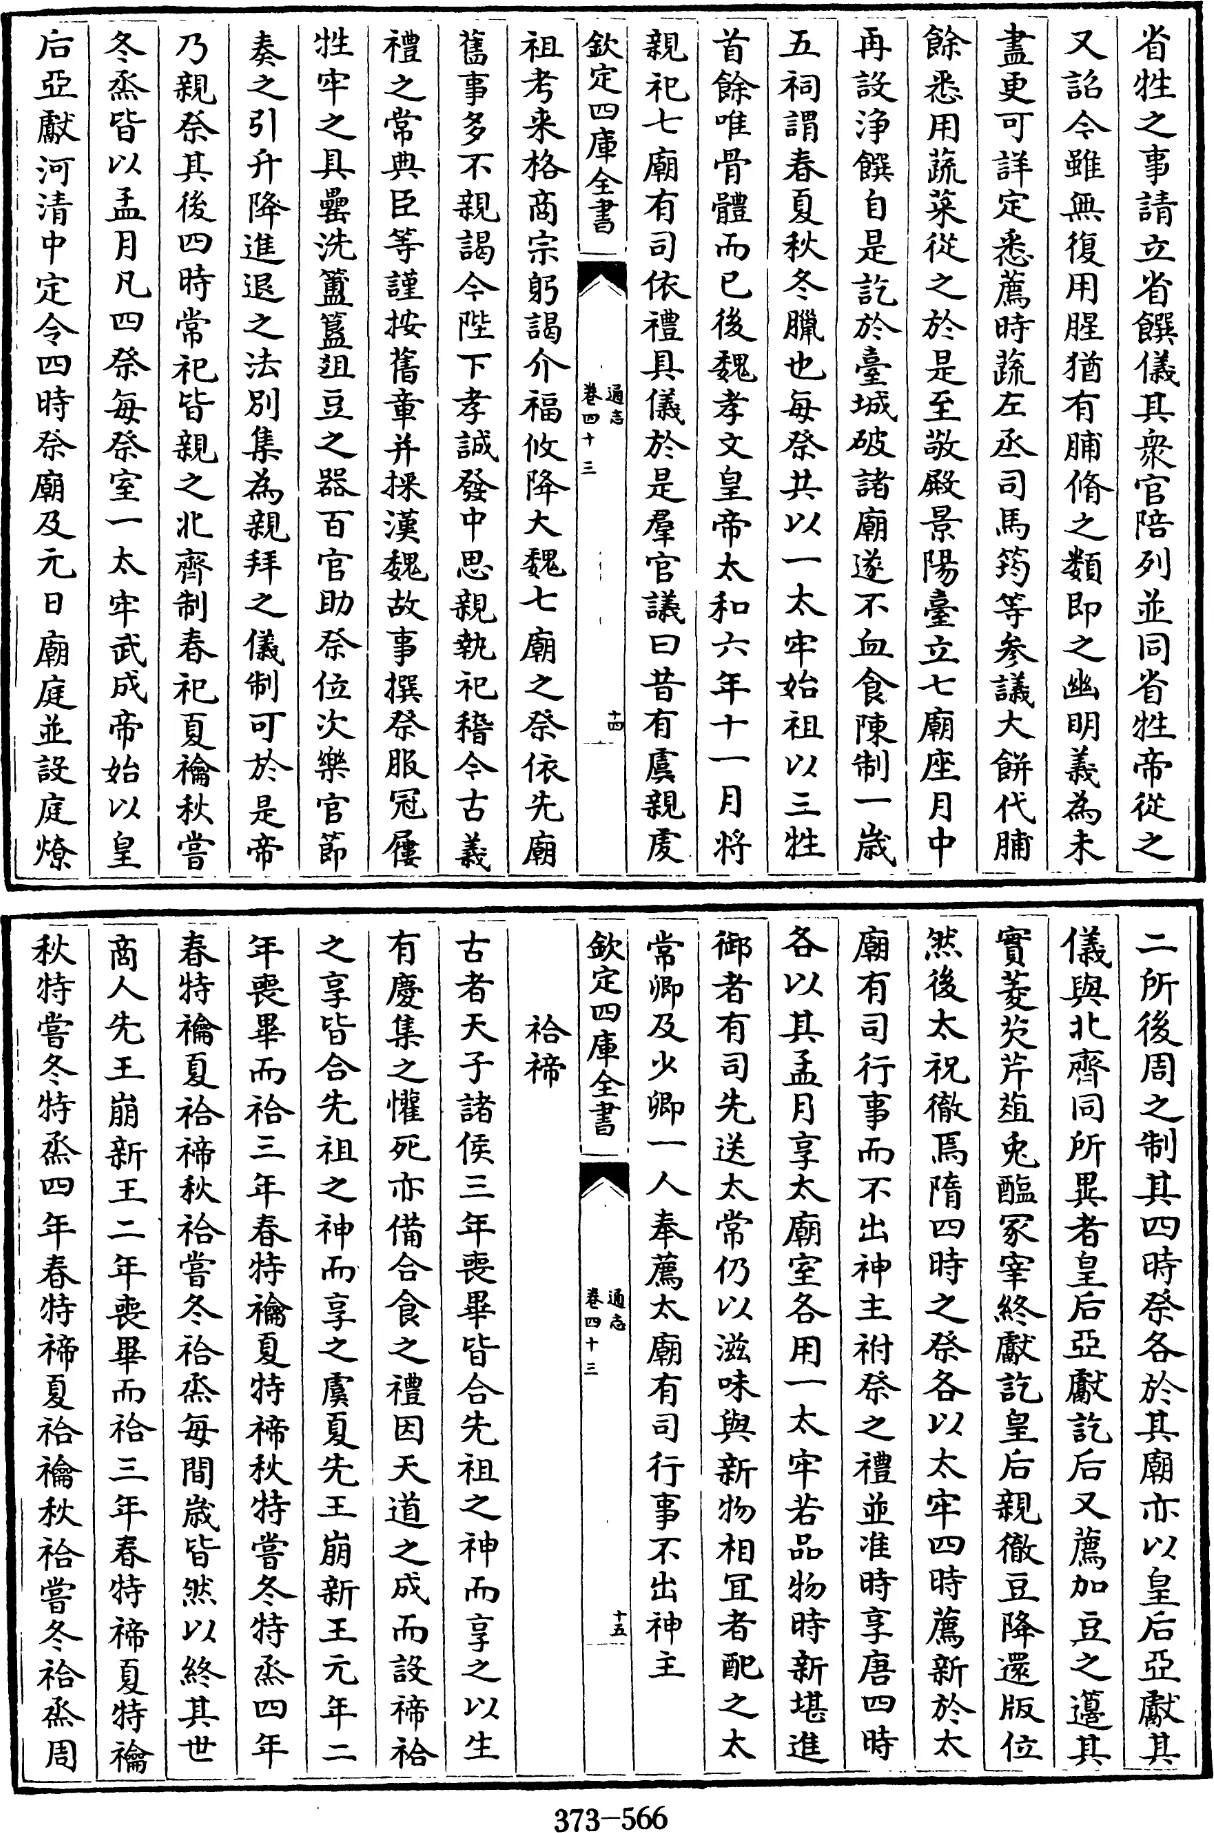 省牲之事請立省饌儀其衆官陪列並同省牲帝從之
又詔今雖無復用腥猶有脯脩之類即之幽明義為未
盡更可詳定悉薦時蔬左丞司馬筠等參議大餅代脯
餘悉用蔬菜從之於是至敬殿景陽臺立七廟座月中
再設浄饌自是訖於臺城破諸廟遂不血食陳制一歳
五祠謂春夏秋冬臘也每祭共以一太牢始祖以三牲
首餘唯骨體而已後魏孝文皇帝太和六年十一月將
親祀七廟有司依禮具儀於是羣官議曰昔有虞親虔
欽定四庫全書
通志
卷四十三
十四
祖考来格商宗躬謁介福攸降大魏七廟之祭依先廟
舊事多不親謁今陛下孝誠發中思親執祀稽今古義
禮之常典臣等謹按舊章并採漢魏故事撰祭服冠屨
牲牢之具罍洗簠簋俎豆之器百官助祭位次樂官節
奏之引升降進退之法別集為親拜之儀制可於是帝
乃親祭其後四時常祀皆親之北齊制春祀夏禴秋嘗
冬烝皆以孟月凡四祭每祭室一太牢武成帝始以皇
后亞獻河清中定令四時祭廟及元日廟庭並設庭燎
二所後周之制其四時祭各於其廟亦以皇后亞獻其
儀與北齊同所異者皇后亞獻訖后又薦加豆之籩其
實菱芡芹葅兎醢冢宰終獻訖皇后親徹豆降還版位
然後太祝徹焉隋四時之祭各以太牢四時薦新於太
廟有司行事而不出神主祔祭之禮並准時享唐四時
各以其孟月享太廟室各用一太牢若品物時新堪進
御者有司先送太常仍以滋味與新物相冝者配之太
常卿及少卿一人奉薦太廟有司行事不出神主
欽定四庫全書
通志
卷四十三
十五
祫禘
古者天子諸侯三年喪畢皆合先祖之神而享之以生
有慶集之懽死亦備合食之禮因天道之成而設禘祫
之享皆合先祖之神而享之虞夏先王崩新王元年二
年喪畢而祫三年春特禴夏特禘秋特嘗冬特烝四年
春特禴夏祫禘秋祫嘗冬祫烝每間歳皆然以終其世
商人先王崩新王二年喪畢而祫三年春特禘夏特禴
秋特嘗冬特烝四年春特禘夏祫禴秋祫嘗冬祫烝周
373-566